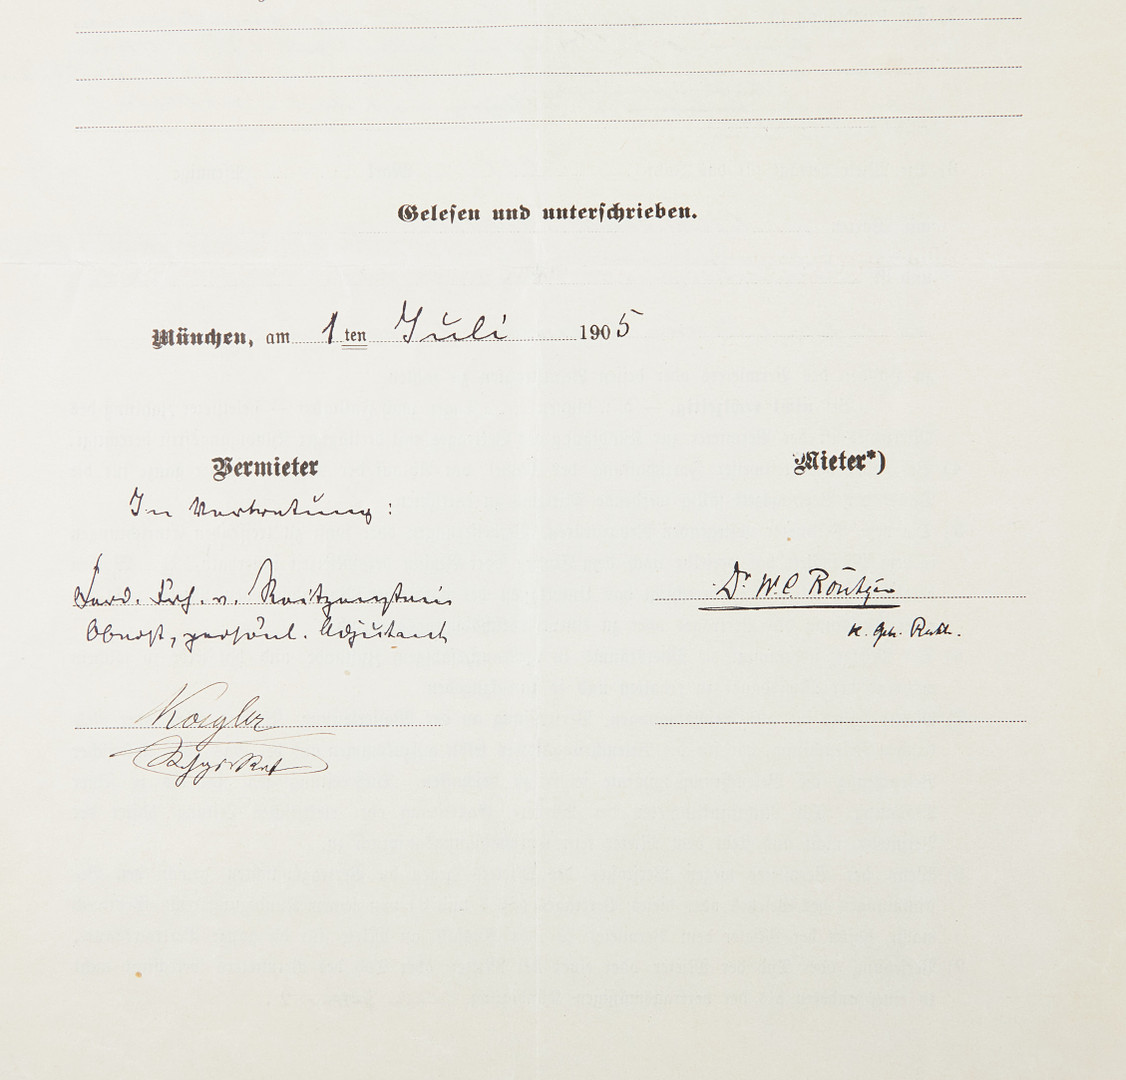 Gelesen und unterschrieben.
München, am 1 ten Juli 1905
Vermieter
In Vertretung:
Ferd. Frh. v. Reitzenstein
Oberst, persönl. Adjutant
Mieter*)
Dr. W. C. Röntgen
k. Geh. Rath.